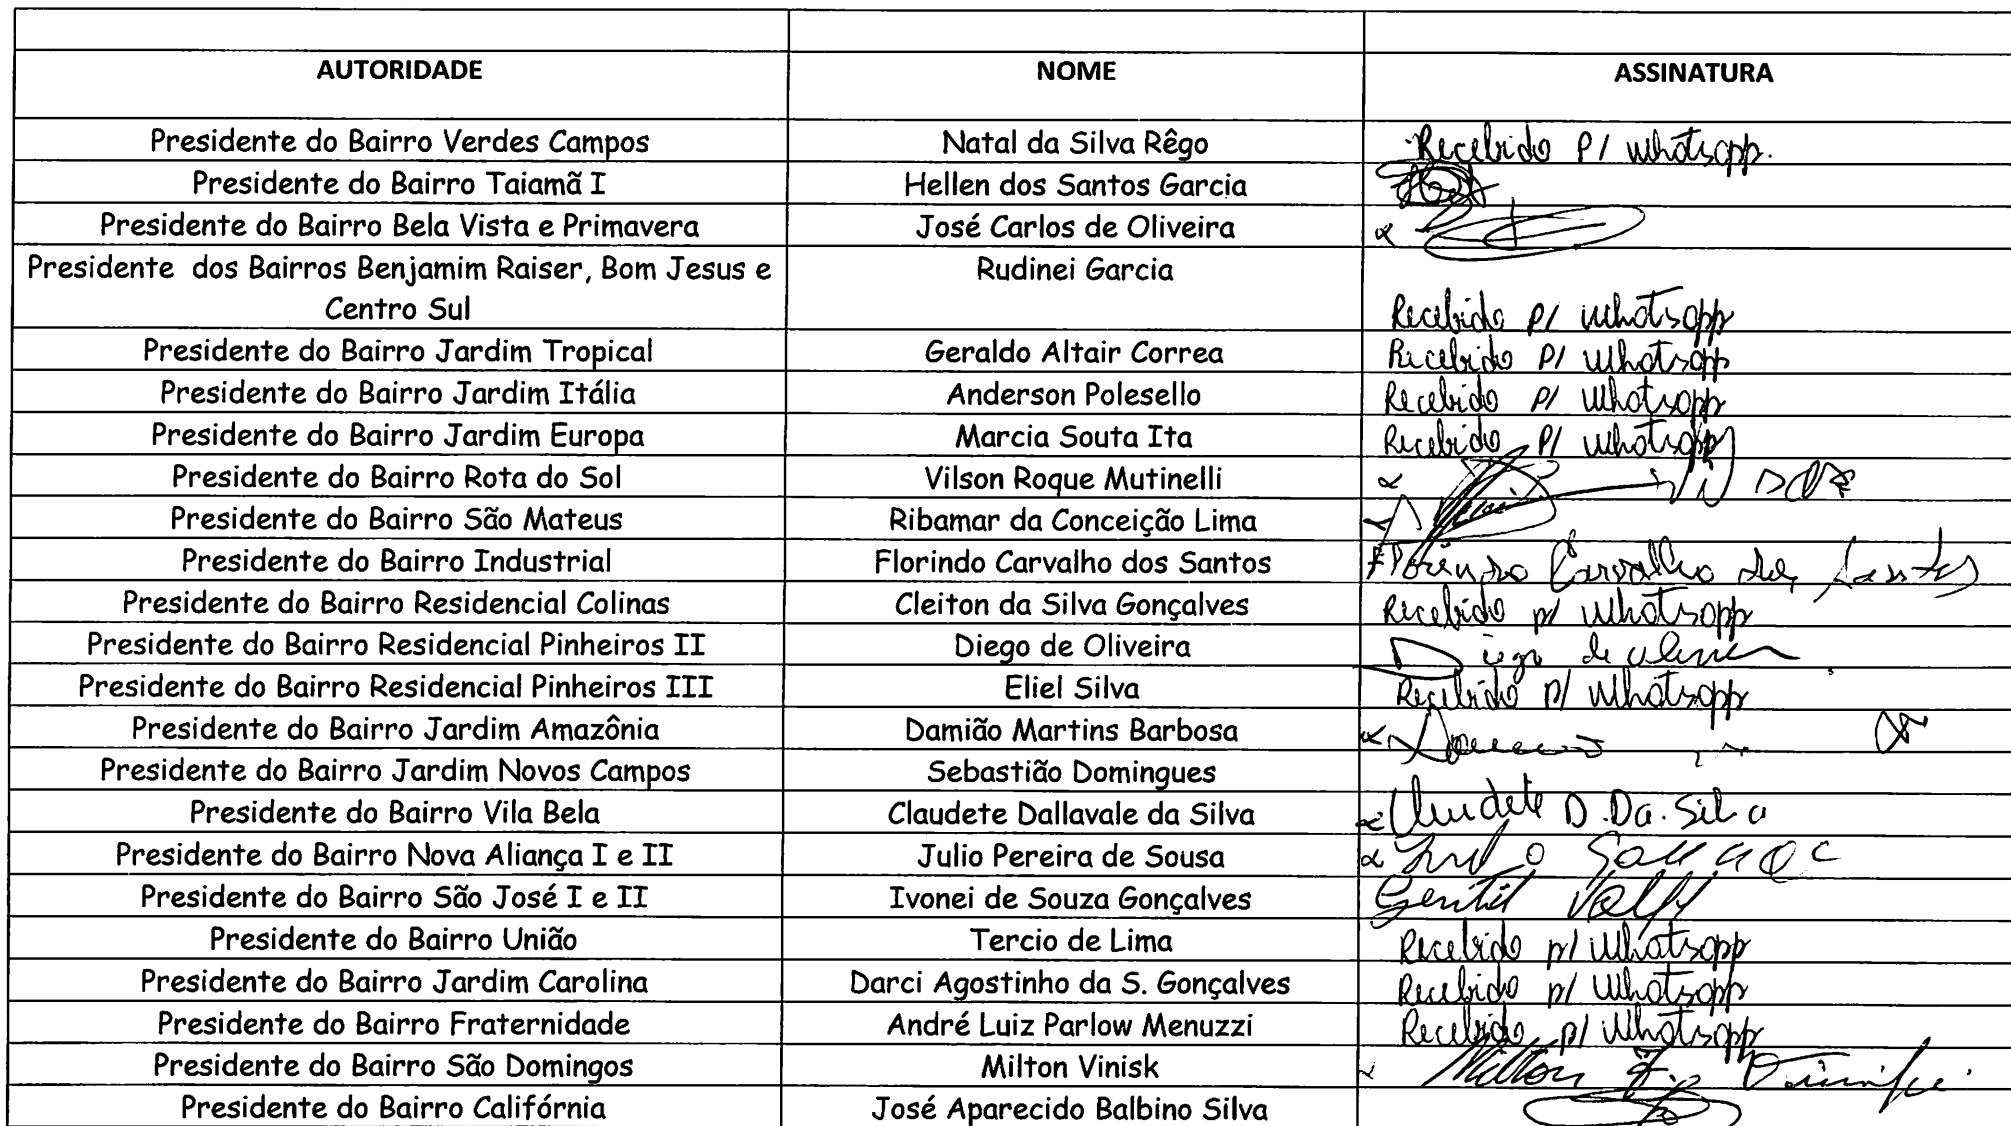 AUTORIDADE NOME ASSINATURA
Presidente do Bairro Verdes Campos Natal da Silva Rêgo Recebido p/ whatsapp.
Presidente do Bairro Taiamã I Hellen dos Santos Garcia
Presidente do Bairro Bela Vista e Primavera José Carlos de Oliveira
Presidente dos Bairros Benjamim Raiser, Bom Jesus e Rudinei Garcia
Centro Sul Recebido p/ whatsapp
Presidente do Bairro Jardim Tropical Geraldo Altair Correa Recebido p/ whatsapp
Presidente do Bairro Jardim Itália Anderson Polesello Recebido p/ whatsapp
Presidente do Bairro Jardim Europa Marcia Souta Ita Recebido p/ whatsapp
Presidente do Bairro Rota do Sol Vilson Roque Mutinelli
Presidente do Bairro São Mateus Ribamar da Conceição Lima
Presidente do Bairro Industrial Florindo Carvalho dos Santos Florindo Carvalho dos Santos
Presidente do Bairro Residencial Colinas Cleiton da Silva Gonçalves Recebido p/ whatsapp
Presidente do Bairro Residencial Pinheiros II Diego de Oliveira Diego de
Presidente do Bairro Residencial Pinheiros III Eliel Silva Recebido p/ whatsapp
Presidente do Bairro Jardim Amazônia Damião Martins Barbosa
Presidente do Bairro Jardim Novos Campos Sebastião Domingues
Presidente do Bairro Vila Bela Claudete Dallavale da Silva Claudete D. Da. Silva
Presidente do Bairro Nova Aliança I e II Julio Pereira de Sousa
Presidente do Bairro São José I e II Ivonei de Souza Gonçalves Gentil
Presidente do Bairro União Tercio de Lima Recebido p/ Whatsapp
Presidente do Bairro Jardim Carolina Darci Agostinho da S. Gonçalves Recebido p/ Whatsapp
Presidente do Bairro Fraternidade André Luiz Parlow Menuzzi Recebido p/ Whatsapp
Presidente do Bairro São Domingos Milton Vinisk Milton
Presidente do Bairro Califórnia José Aparecido Balbino Silva